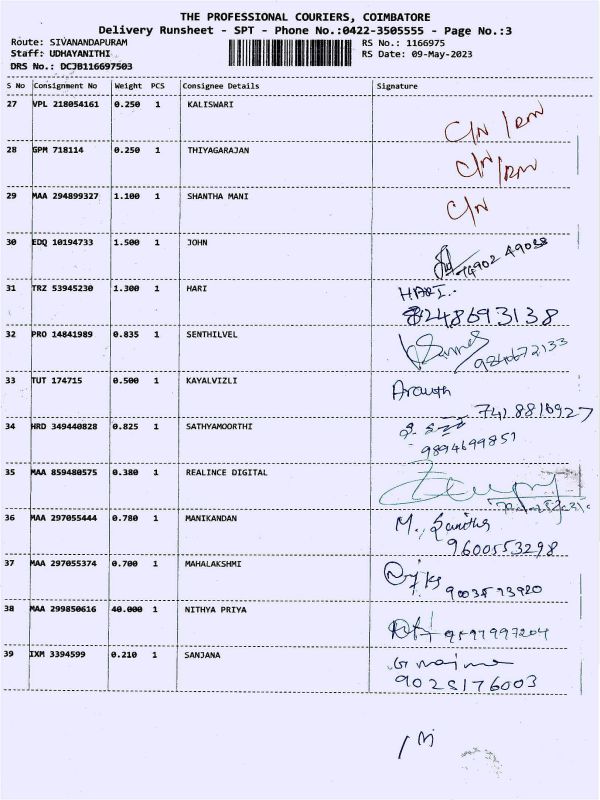 THE PROFESSIONAL COURIERS, COIMBATORE
Delivery Runsheet - SPT - Phone No.:0422-3505555 - Page No.:3
Route: SIVANANDAPURAM RS No.: 1166975
Staff: UDHAYANITHI RS Date: 09-May-2023
DRS No.: DCJB116697503
S No Consignment No Weight PCS Consignee Details Signature
27 VPL 218054161 0.250 1 KALISWARI C/N / RM
28 GPM 718114 0.250 1 THIYAGARAJAN C/N / RM
29 MAA 294899327 1.100 1 SHANTHA MANI C/N
30 EDQ 10194733 1.500 1 JOHN 74902 49038
31 TRZ 53945230 1.300 1 HARI HARI
8248693138
32 PRO 14841989 0.835 1 SENTHILVEL
9840672133
33 TUT 174715 0.500 1 KAYALVIZLI
7418816927
34 HRD 349440828 0.825 1 SATHYAMOORTHI
9894699851
35 MAA 859480575 0.380 1 REALINCE DIGITAL
36 MAA 297055444 0.780 1 MANIKANDAN M.
9600553298
37 MAA 297055374 0.700 1 MAHALAKSHMI
38 MAA 299850616 40.000 1 NITHYA PRIYA 9597997204
39 IXM 3394599 0.210 1 SANJANA
9025176003